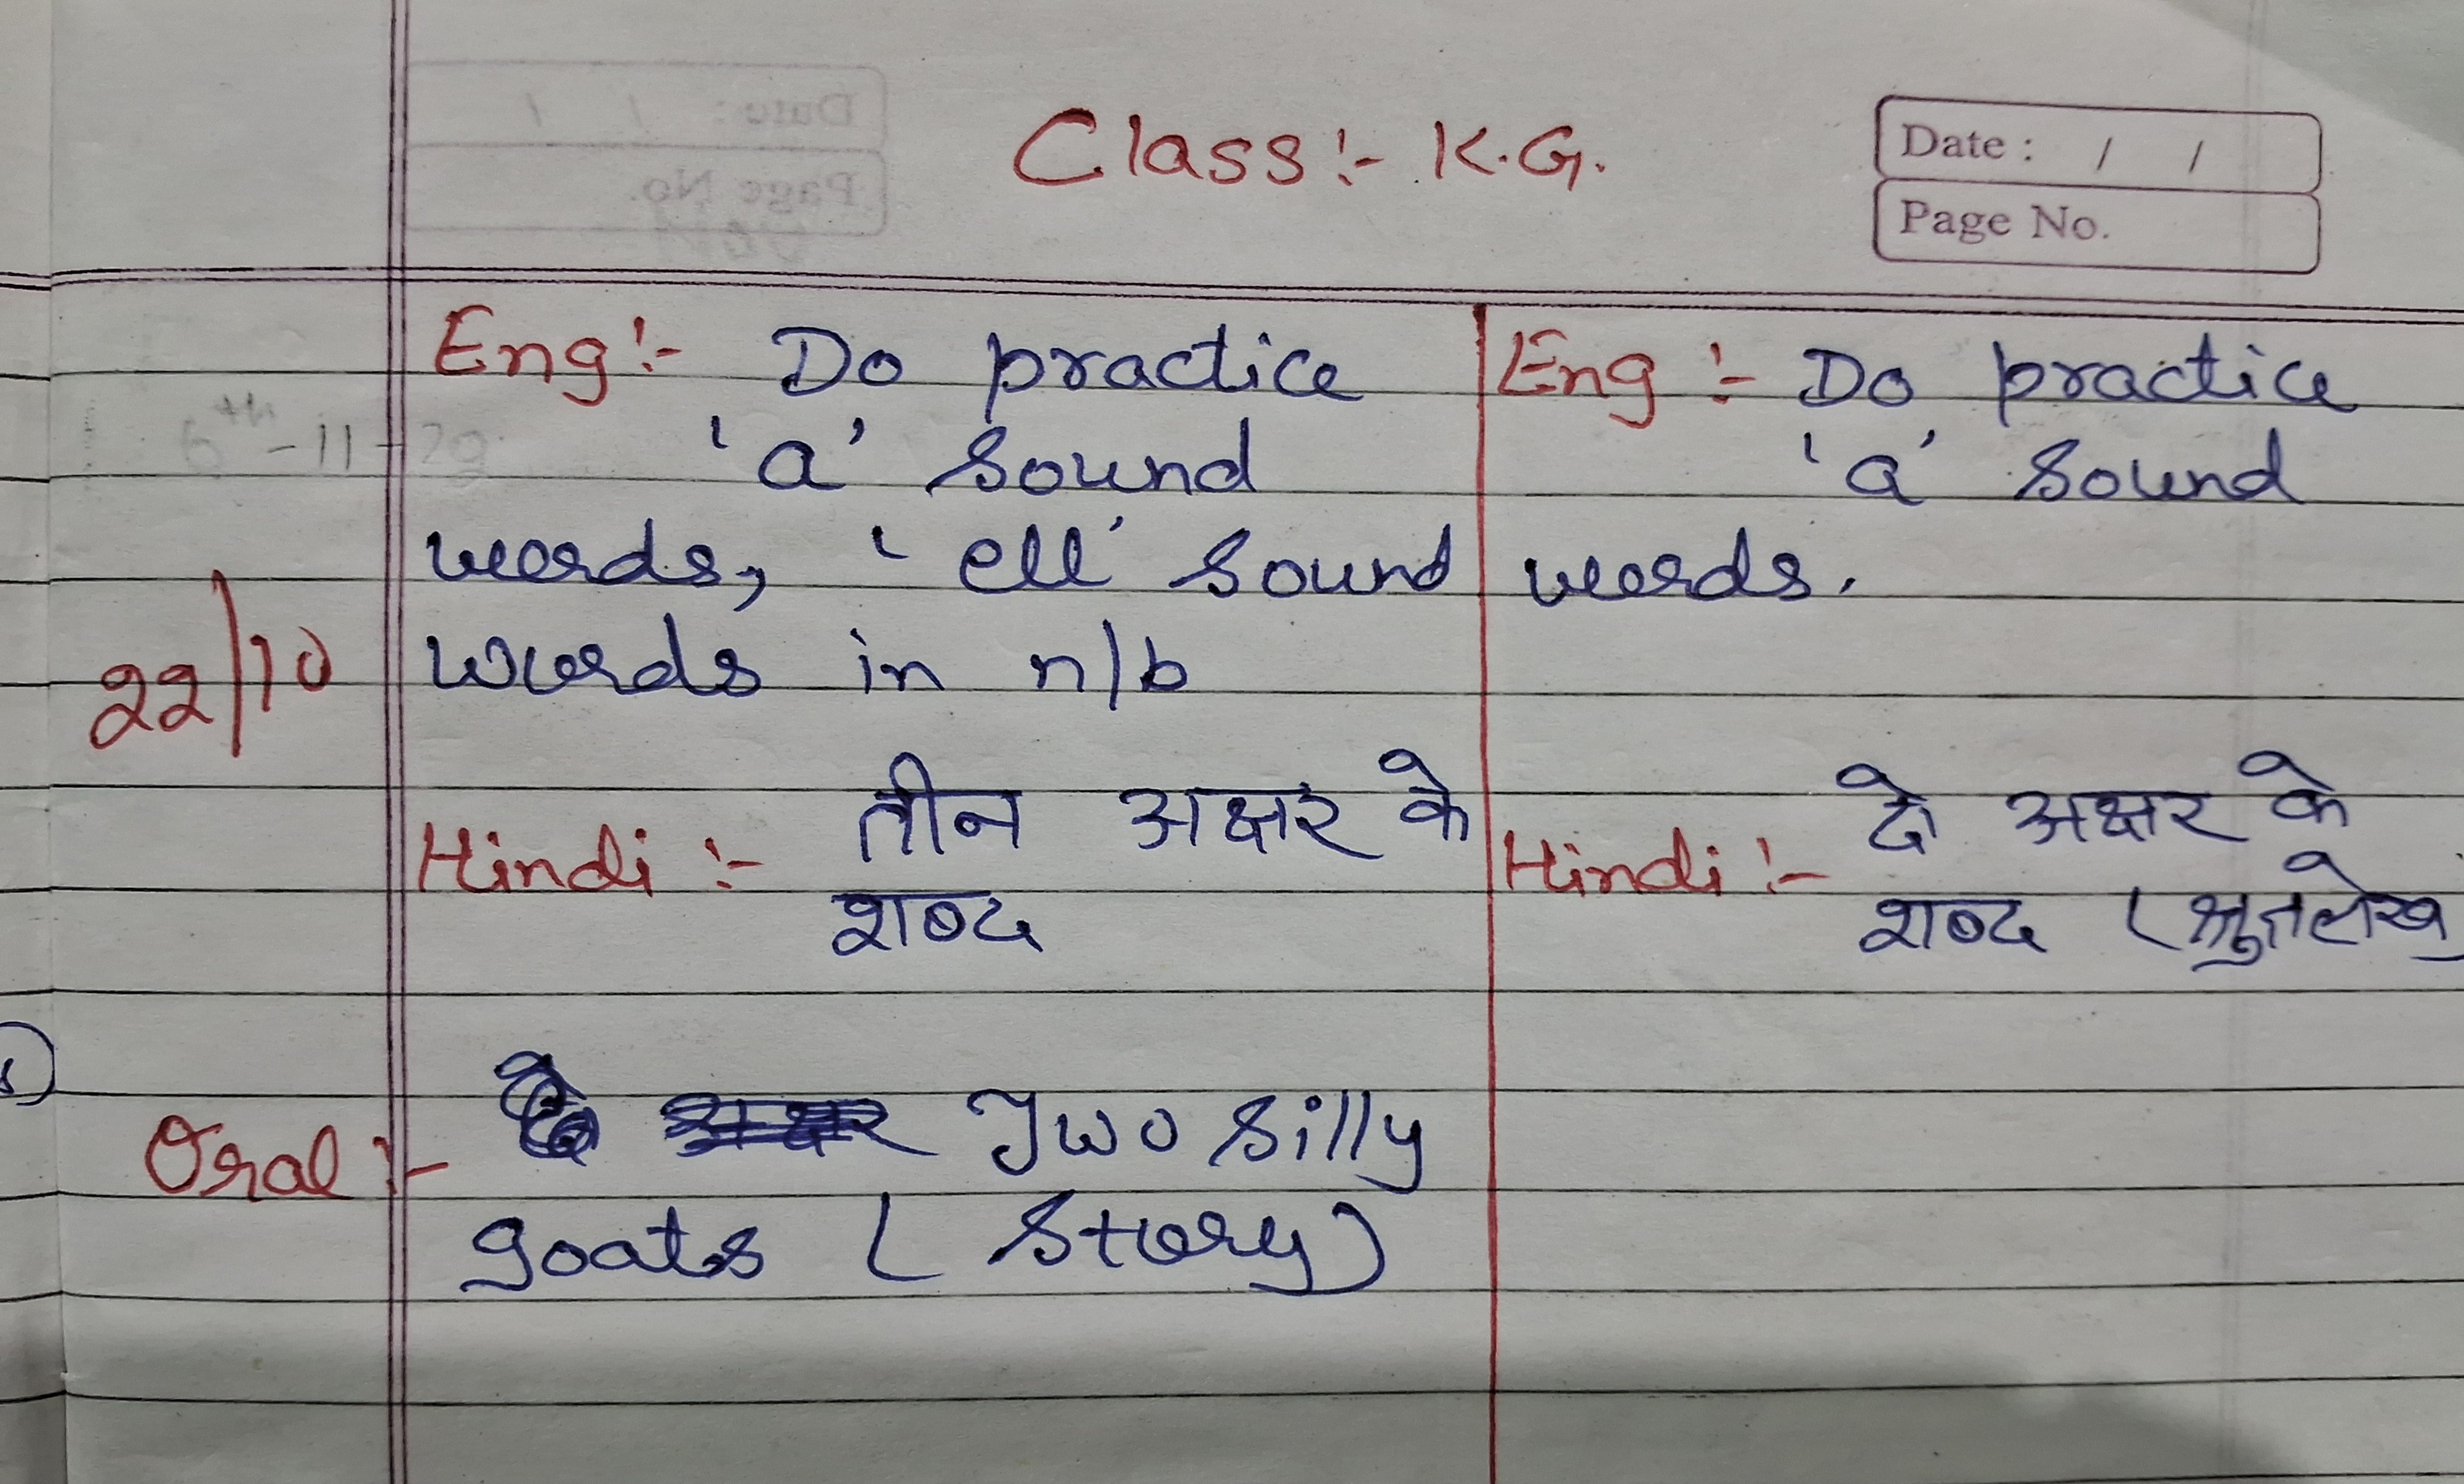 Class :- K.G.
Date : / /
Page No.
Eng :- Do practice
'a' sound
words, 'ell' sound
words in n/b
22/10
Hindi :- तीन अक्षर के
शब्द
Oral :- Two silly
goats (Story)
Eng :- Do practice
'a' sound
words.
Hindi :- दो अक्षर के
शब्द (श्रुतलेख